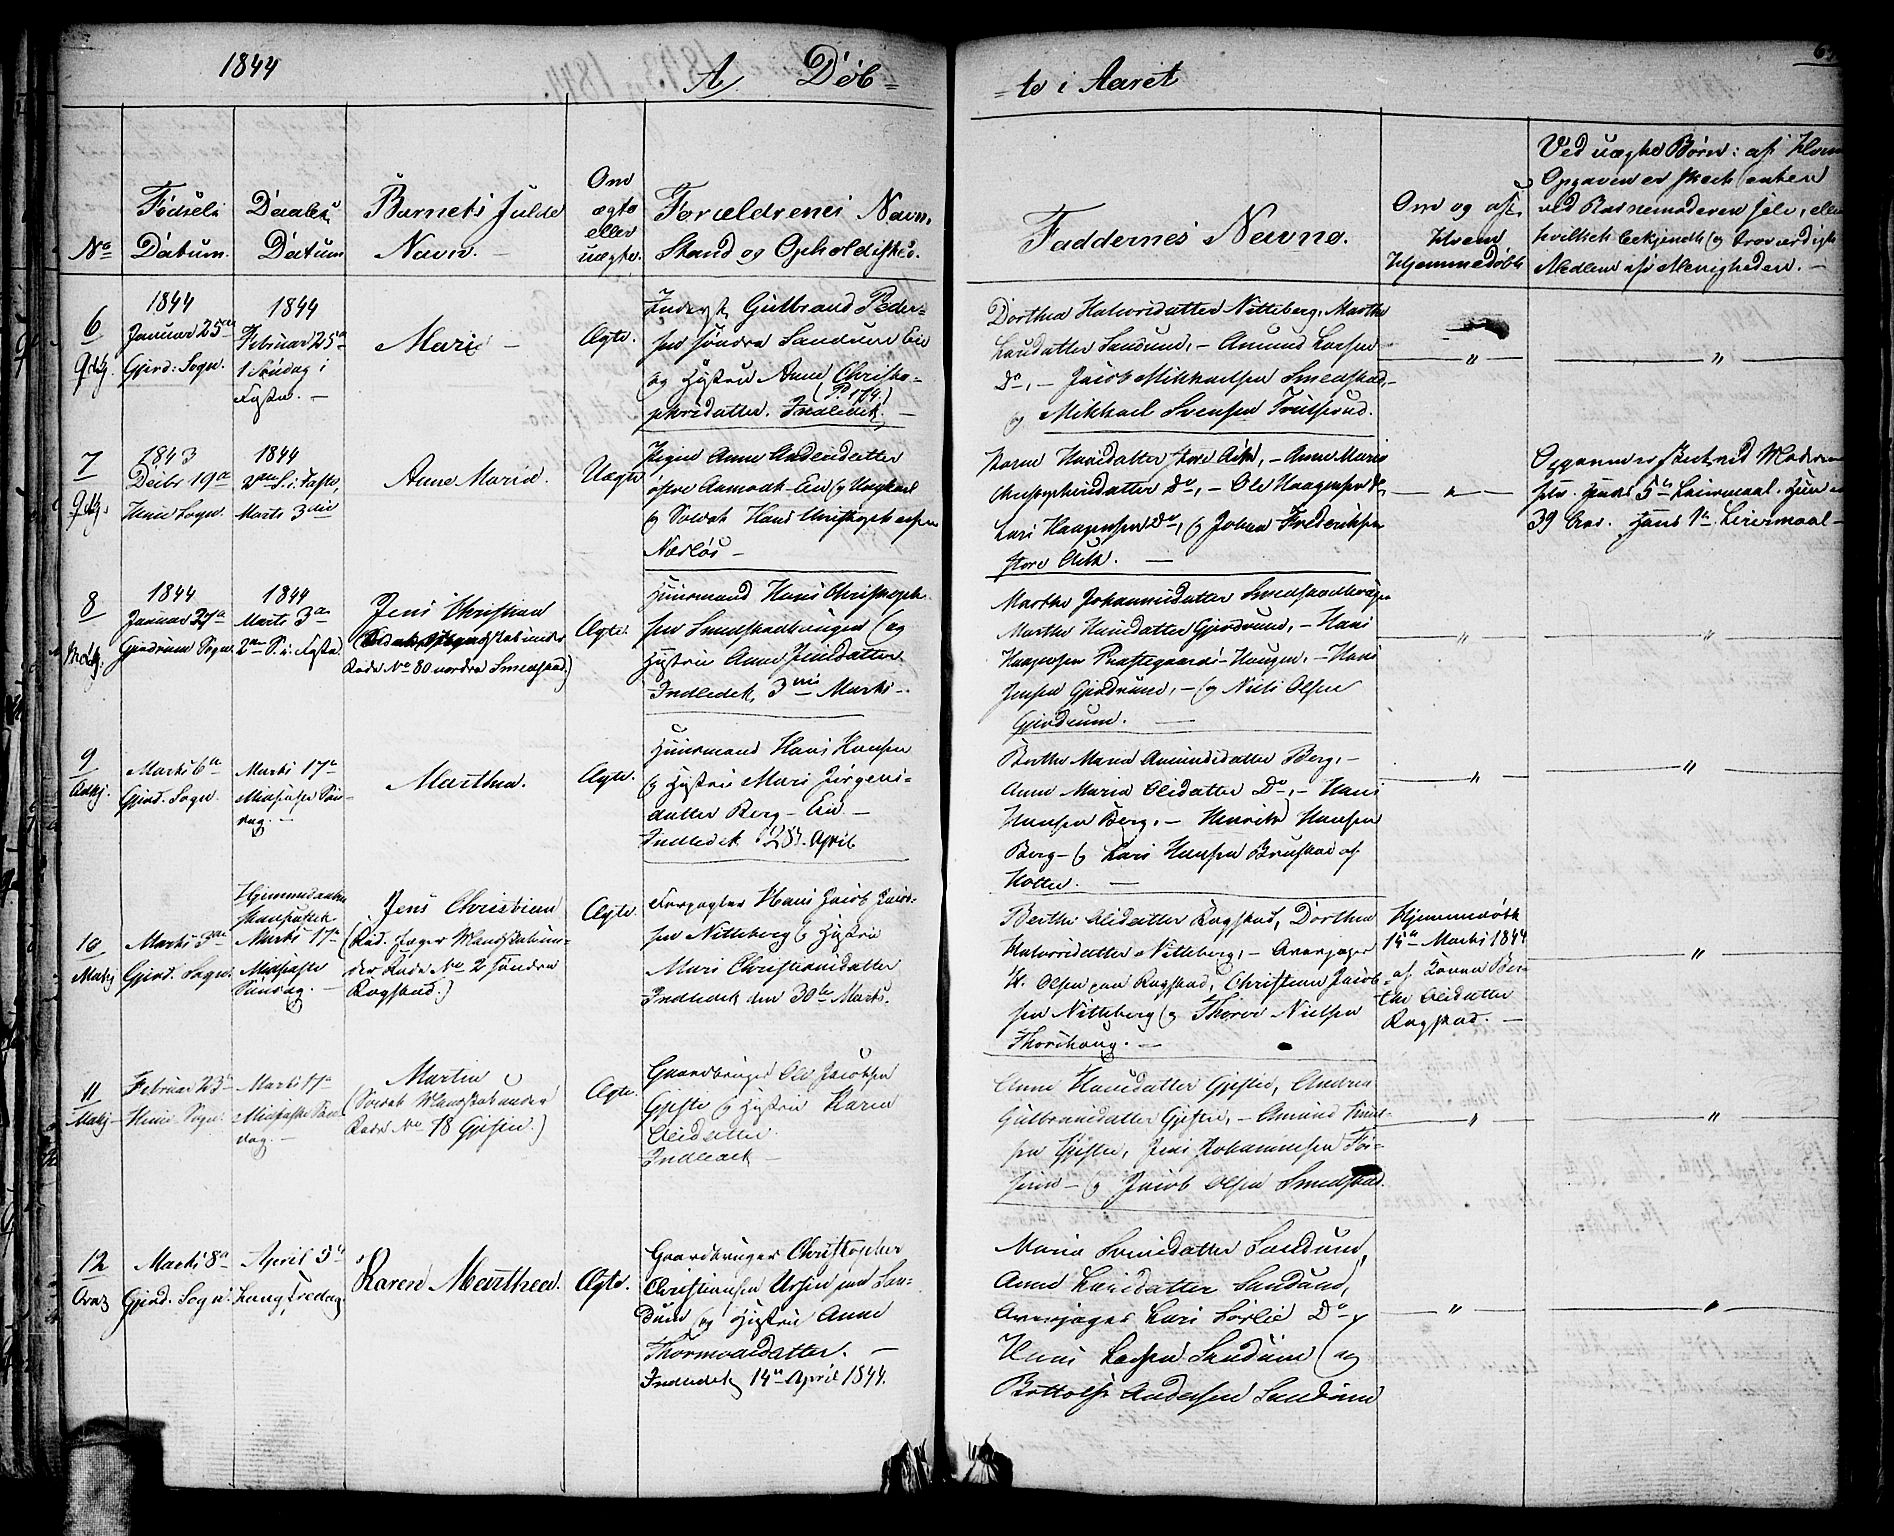 1844
A Døb-
-te i Aaret
No
Fødsels
Datum.
Daabens
Datum
Barnets fulde
Navn. -
Om
ægte
eller
uægte.
Forældrenes Navn,
Stand og Opholdssted.
Faddernes Navne.
Om og af
hvem
hjemmedøbt
Ved uægte Børn: af hvem
Opgaven er skeet enten
ved Barnemoderen selv, eller
hvilket bekjendt og troværdigt
Medlem af Menigheden. -
6
1844
Januar 25de
Gjerd: Sogn.
1844
Februar 25de
1 Søndag i
Faste. -
Marie -
Ægte.
Gulbrand Peder-
sen søndre Sandum Eie
og Hustru Anne Christo-
phersdatter. Indledet -
(P. 174)
Dorthea Halvorsdatter Nitteberg, Marthe
Larsdatter Sandum, - Amund Larsen
Do, - Jacob Mikkelsen Smedstad
og Mikkael Svensen
7
1843
Decbr 19de
1844
2den S. i Faste,
Marts 3die
Anne Maria.
Uægte
Pigen Anne Andersdatter
og Soldat Hans Christophersen
Karen Hansdatter store Ask, - Anne Marie
Christophersdatter Do, - Ole Haagensen Do,
Lars Haagensen Do, og Johan Frederiksen
store Ask. -
Opgaven er skeet ved Moderen
selv. Hendes 5te Leiermaal. Hun er
39 Aar. Hans 1ste Leiermaal -
8
1844
Januar 27de
Gjerdrum Sogn.
1844
Marts 3die
2den S. i Faste.
Jens Christian
Rode No 80 nordre Smedstad)
Ægte.
Huusmand Hans Christoph-
sen Smedstadhaugen og
Hustru Anne Jensdatter
Indledet 3die Marts -
Marthe Johannesdatter Smedstadhaugen
Marthe Hansdatter Gjerdrum, - Hans
Haagensen Præstegaards-Haugen, - Hans
Jensen Gjerdrum, - og Niels Olsen
Gjerdrum. -
9
Marts 6te
Gjerd. Sogn.
Marts 17de
Midfaste Søn-
dag. -
Marthea.
Ægte.
Huusmand Hans Hansen
og Hustru Mari Jørgens-
datter Berg - Eie -
Indledet 28de April
Berthe Marie Amundsdatter Berg, -
Anne Maria Olsdatter Do, - Hans
Hansen Berg, - Henrik Hansen
Berg - og Lars Hansen Brustad af
Holter. -
10
Marts 3die
Gjerd. Sogn.
Hjemmedaaben
stadfæstet
Marts 17de
Midfaste
Søndag. -
Jens Christian
(Rid. Jæger Mandskab un-
der Rode No 2 søndre
Ragstad.)
Ægte.
Forpagter Hans Jacob Jacob-
sen Nitteberg og Hustru
Mari Christiansdatter
Indledet den 30te Marts.
Berthe Olsdatter Ragstad, Dorthea
Halvorsdatter Nitteberg, - Qvarjæger
H. Olsen paa Ragstad, Christian Jacob-
sen Nitteberg og Thorer Nielsen
Thorshaug. -
Hjemmedøbt
14de Marts 1844
af Konen Ber-
the Olsdatter
Ragstad. -
11
Februar 23de
Marts 17de
Midfaste Søn-
dag. -
Martin
(Soldat Mandskab under
Rode No 18 Gjestie.)
Ægte.
Gaardbruger Ole Jacobsen
Gjeste og Hustru Karen
Olsdatter
Indledet -
Anne Hansdatter Gjestie, Andrea
Gulbrandsdatter Gjestie, - Amund
sen Gjestie, Jens Johannesen
- og Jacob Olsen Smedstad.
12
Marts 8de
Gjerd. Sogn.
April 5te
Langfredag.
Karen Marthea.
Ægte.
Gaardbruger Christopher
Christiansen paa San-
dum og Hustru Anne
Thormodsdatter. -
Indledet 14de April 1844.
Maria Svendsdatter Sandum,
Anne Larsdatter Sandum,
Qvarjæger Lars Sørlie Do,
Hans Larsen Sandum og
Bottolf Andersen Sandum